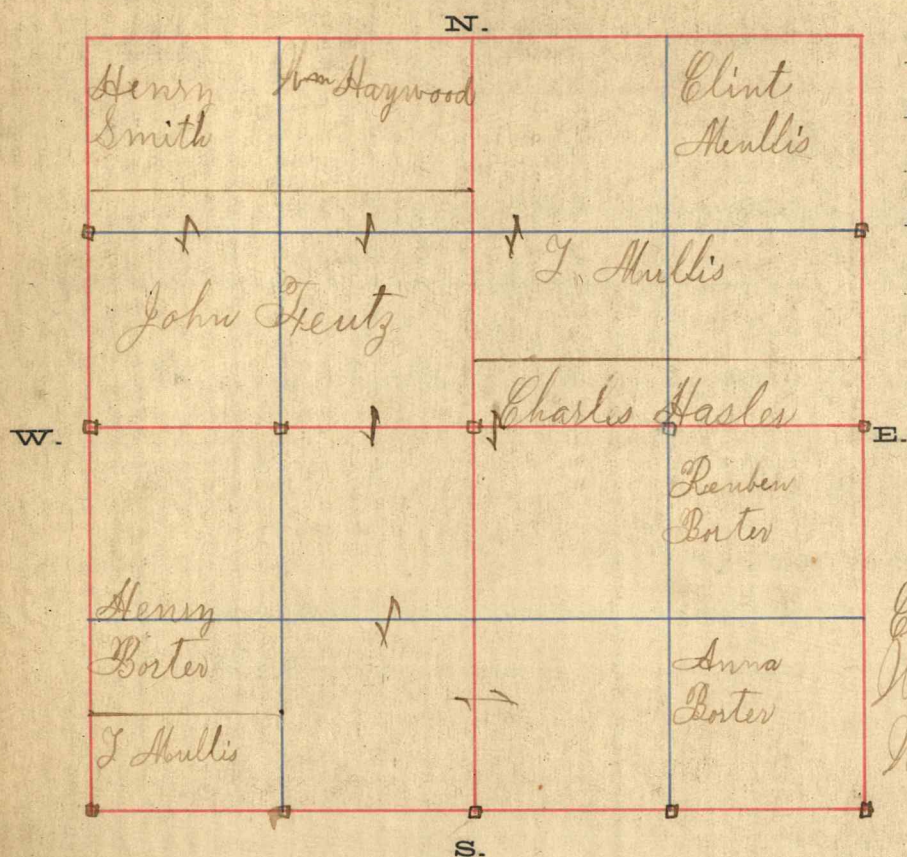 N.
Henry
Smith
Wm Haywood
Clint
Mullis
J. Mullis
John Feutz
Charles Hasler
W.
E.
Reuben
Borter
Henry
Borter
Anna
Borter
J Mullis
S.